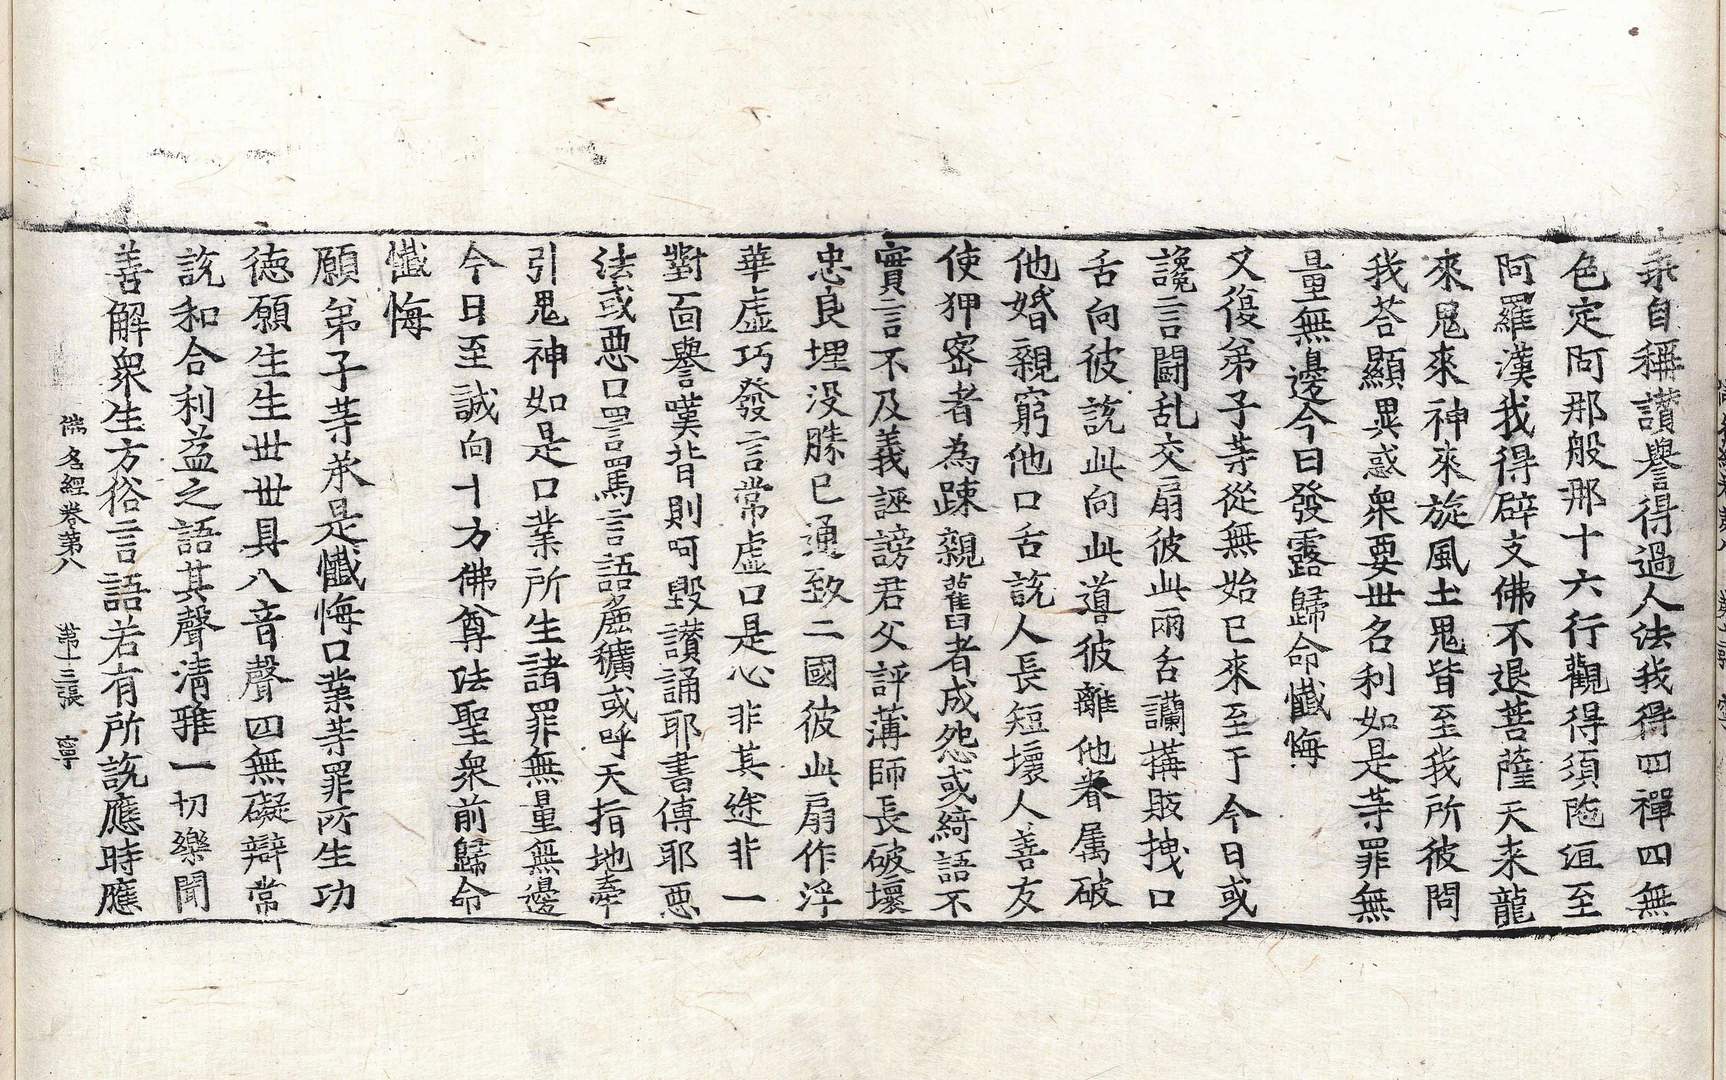 乘自稱讃譽得過人法我得四禪四無
色定阿那般那十六行觀得須陁洹至
阿羅漢我得辟支佛不退菩薩天来龍
來鬼來神來旋風土鬼皆至我所彼問
我荅顯異惑衆要世名利如是等罪無
量無邊今日發露歸命懺悔
又復弟子等從無始已來至于今日或
讒言鬪乱交扇彼此兩舌讕搆販拽口
舌向彼說此向此道彼離他眷属破
他婚親窮他口舌說人長短壞人善友
使狎密者為踈親舊者成怨或綺語不
實言不及義誣謗君父評薄師長破壞
忠良埋没勝已通致二國彼此扇作浮
華虛巧發言常虛口是心非其途非一
對面譽嘆背則呵毀讃誦耶書傳耶惡
法或惡口罵言語麁穬或呼天指地牽
引鬼神如是口業所生諸罪無量無邊
今日至誠向十方佛尊法聖衆前歸命
懺悔
願弟子等承是懺悔口業等罪所生功
德願生生世世具八音聲四無礙辯常
說和合利益之語其聲清雅一切樂聞
善解衆生方俗言語若有所說應時應
佛名經卷第八 第十三張 寧